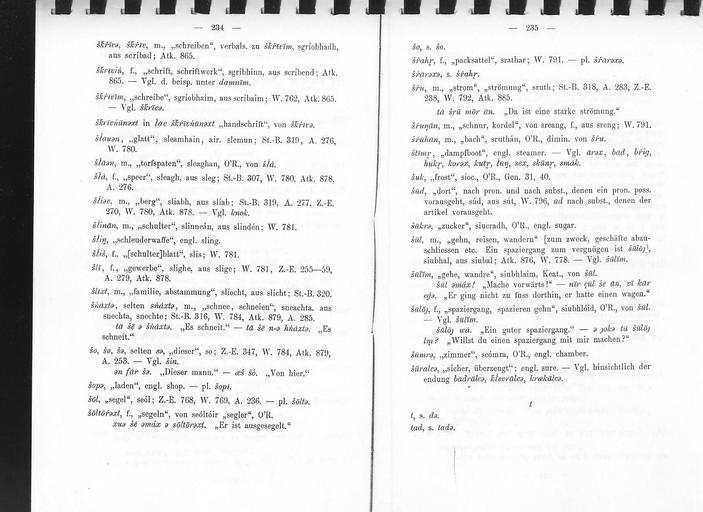 — 234 —
šḱŕīvə, šḱŕīv, m., „schreiben“, verbals. zu šḱrīvīm, sgríobhadh,
aus scríbad; Atk. 865.
šḱrīviń, f., „schrift, schriftwerk“, sgribhinn, aus scribend; Atk.
865. — Vgl. d. beisp. unter damnīm.
šḱŕīvīm, „schreibe“, sgríobhaim, aus scribaim; W. 762, Atk. 865.
— Vgl. šḱrīvə.
šḱrīvńünəxt in łāv šḱrīvńünəxt „handschrift“, von šḱŕīvə.
šlauən, „glatt“, sleamhain, air. slemun; St.-B. 319, A. 276,
W. 780.
šlāən, m., „torfspaten“, sleaghan, O'R., von šlā.
šlā, f., „speer“, sleagh, aus sleg; St.-B. 307, W. 780, Atk. 878,
A. 276.
šlīəv, m., „berg“, sliabh, aus slíab; St.-B. 319, A. 277, Z.-E.
270, W. 780, Atk. 878. — Vgl. knok.
šlinān, m., „schulter“, slinneán, aus slindén; W. 781.
šliŋ, „schleuderwaffe“, engl. sling.
šliš, f., „[schulter]blatt“, slis; W. 781.
šlī, f., „gewerbe“, slighe, aus slige; W. 781, Z.-E. 255—59,
A. 279, Atk. 878.
šlīxt, m., „familie, abstammung“, sliocht, aus slicht; St.-B. 320.
šńāxtə, selten sńāxtə, m., „schnee, schneien“, sneachta. aus
snechta, snechte; St.-B. 316, W. 784, Atk. 879, A. 285.
tā šē ə šńāxtə. „Es schneit.“ — tā šē n-ə hńāxtə. „Es
schneit.“
šo, šə, šə, selten sə, „dieser“, so; Z.-E. 347, W. 784, Atk. 879,
A. 253. — Vgl. šin.
ən fār šə. „Dieser mann.“ — æš šó. „Von hier.“
šopə, „laden“, engl. shop. — pl. šopī.
šōl, „segel“, seól; Z.-E. 768, W. 769, A. 236. — pl. šōltə.
šōltōrəxt, f., „segeln“, von seóltóir „segler“, O'R.
xuə šē əmāx ə sōltōrəxt. „Er ist ausgesegelt.“
— 235 —
šo, s. šo.
śŕahŗ, f., „packsattel“, srathar; W. 791. — pl. śŕarəxə.
śŕarəxə, s. śŕahŗ.
śŕu, m., „strom“, „strömung“, sruth; St.-B. 318, A. 283, Z.-E.
238, W. 792, Atk. 885.
tā śrū mōr ān. „Da ist eine starke strömung.“
śŕuŋān, m., „schnur, kordel“, von sreang, f., aus sreng; W. 791.
śŕuhan, m., „bach“, sruthán, O'R., dimin. von śŕu.
štīmŗ, „dampfboot“, engl. steamer. — Vgl. ārəx, bad, bŕig,
hukŗ, korəx, kutŗ, luŋ, sex, skūnŗ, smāk.
šuk, „frost“, sioc., O'R., Gen. 31, 40.
šūd, „dort“, nach pron. und nach subst., denen ein pron. poss.
vorausgeht, súd, aus sút, W. 796, úd nach subst., denen der
artikel vorausgeht.
šūkrə, „zucker“, siucradh, O'R., engl. sugar.
šūl, m., „gehn, reisen, wandern“ [zum zweck, geschäfte abzu-
schliessen etc. Ein spaziergang zum vergnügen ist šūlōj],
siubhal, aus siubal; Atk. 876, W. 778. — Vgl. šūlīm.
šūlīm, „gehe, wandre“, siubhlaim, Keat., von šūl.
šūl əmāx! „Mache vorwärts!“ — nīr çūl šē ān, vī kār
egə. „Er ging nicht zu fuss dorthin, er hatte einen wagen.“
šūlōj, f., „spaziergang, spazieren gehn“, siubhlóid, O'R., von šūl.
— Vgl. šūlīm.
šūlōj wā. „Ein guter spaziergang.“ — ə jokə tū šūlōj
lɪm? „Willst du einen spaziergang mit mir machen?“
šūmrə, „zimmer“, seómra, O'R., engl. chamber.
šūrālcə, „sicher, überzeugt“; engl. sure. — Vgl. hinsichtlich der
endung badrālcə, klevrālcə, krækālcə.
t
t, s. də.
tad, s. tadə.